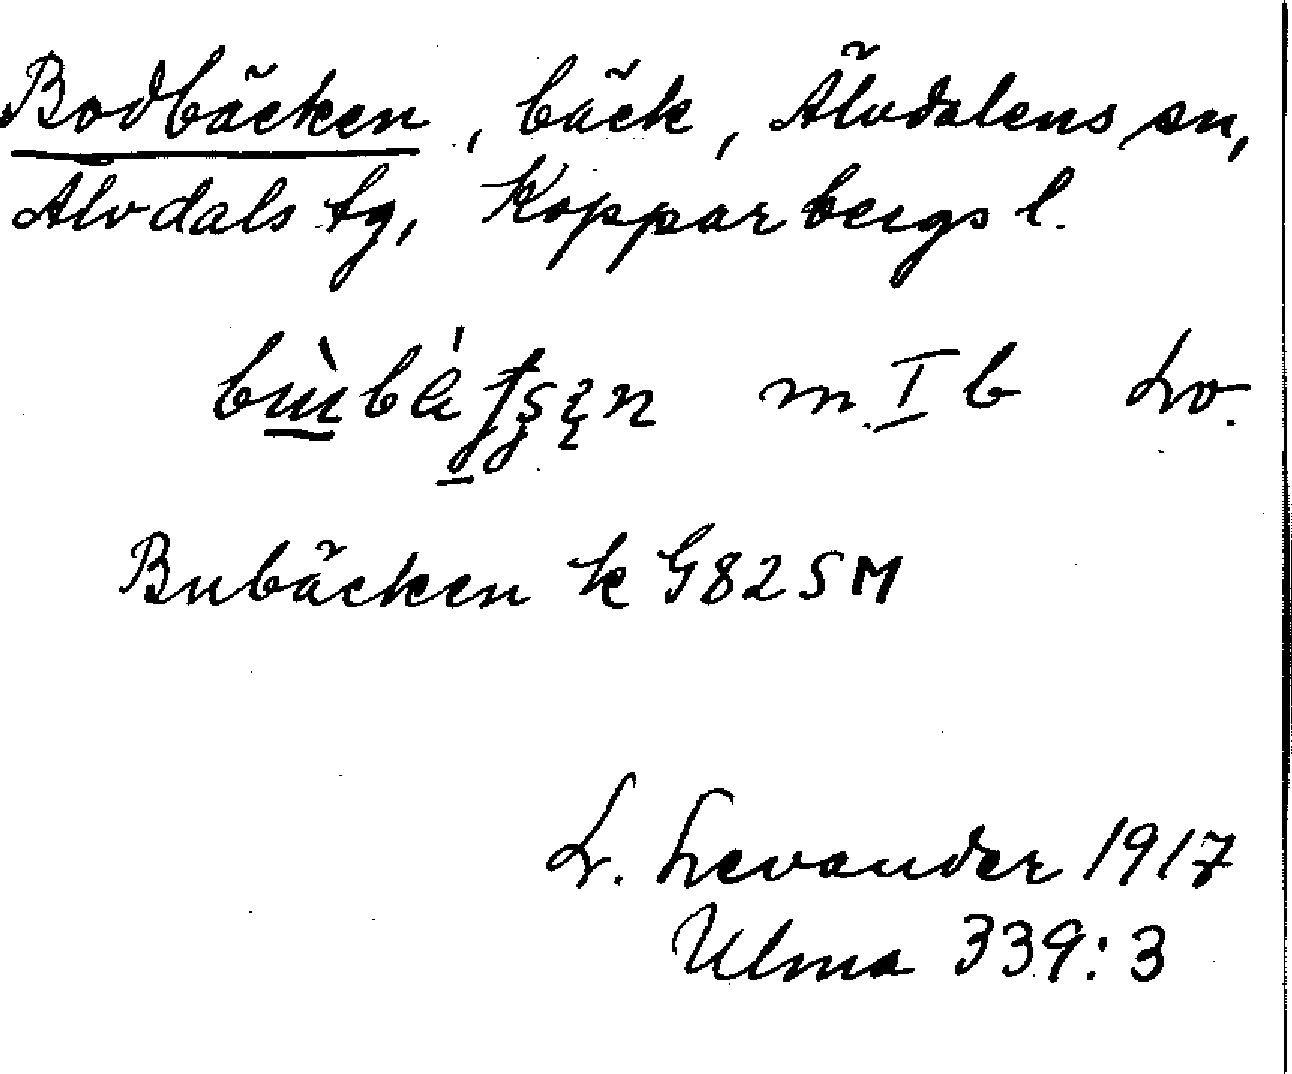 Bodbäcken, bäck, Älvdalens sn,
Älvdals tg, Kopparbergs l.
m. I b Lv.
Bubäcken k G82SM
L. Levander 1917
Ulma 339:3